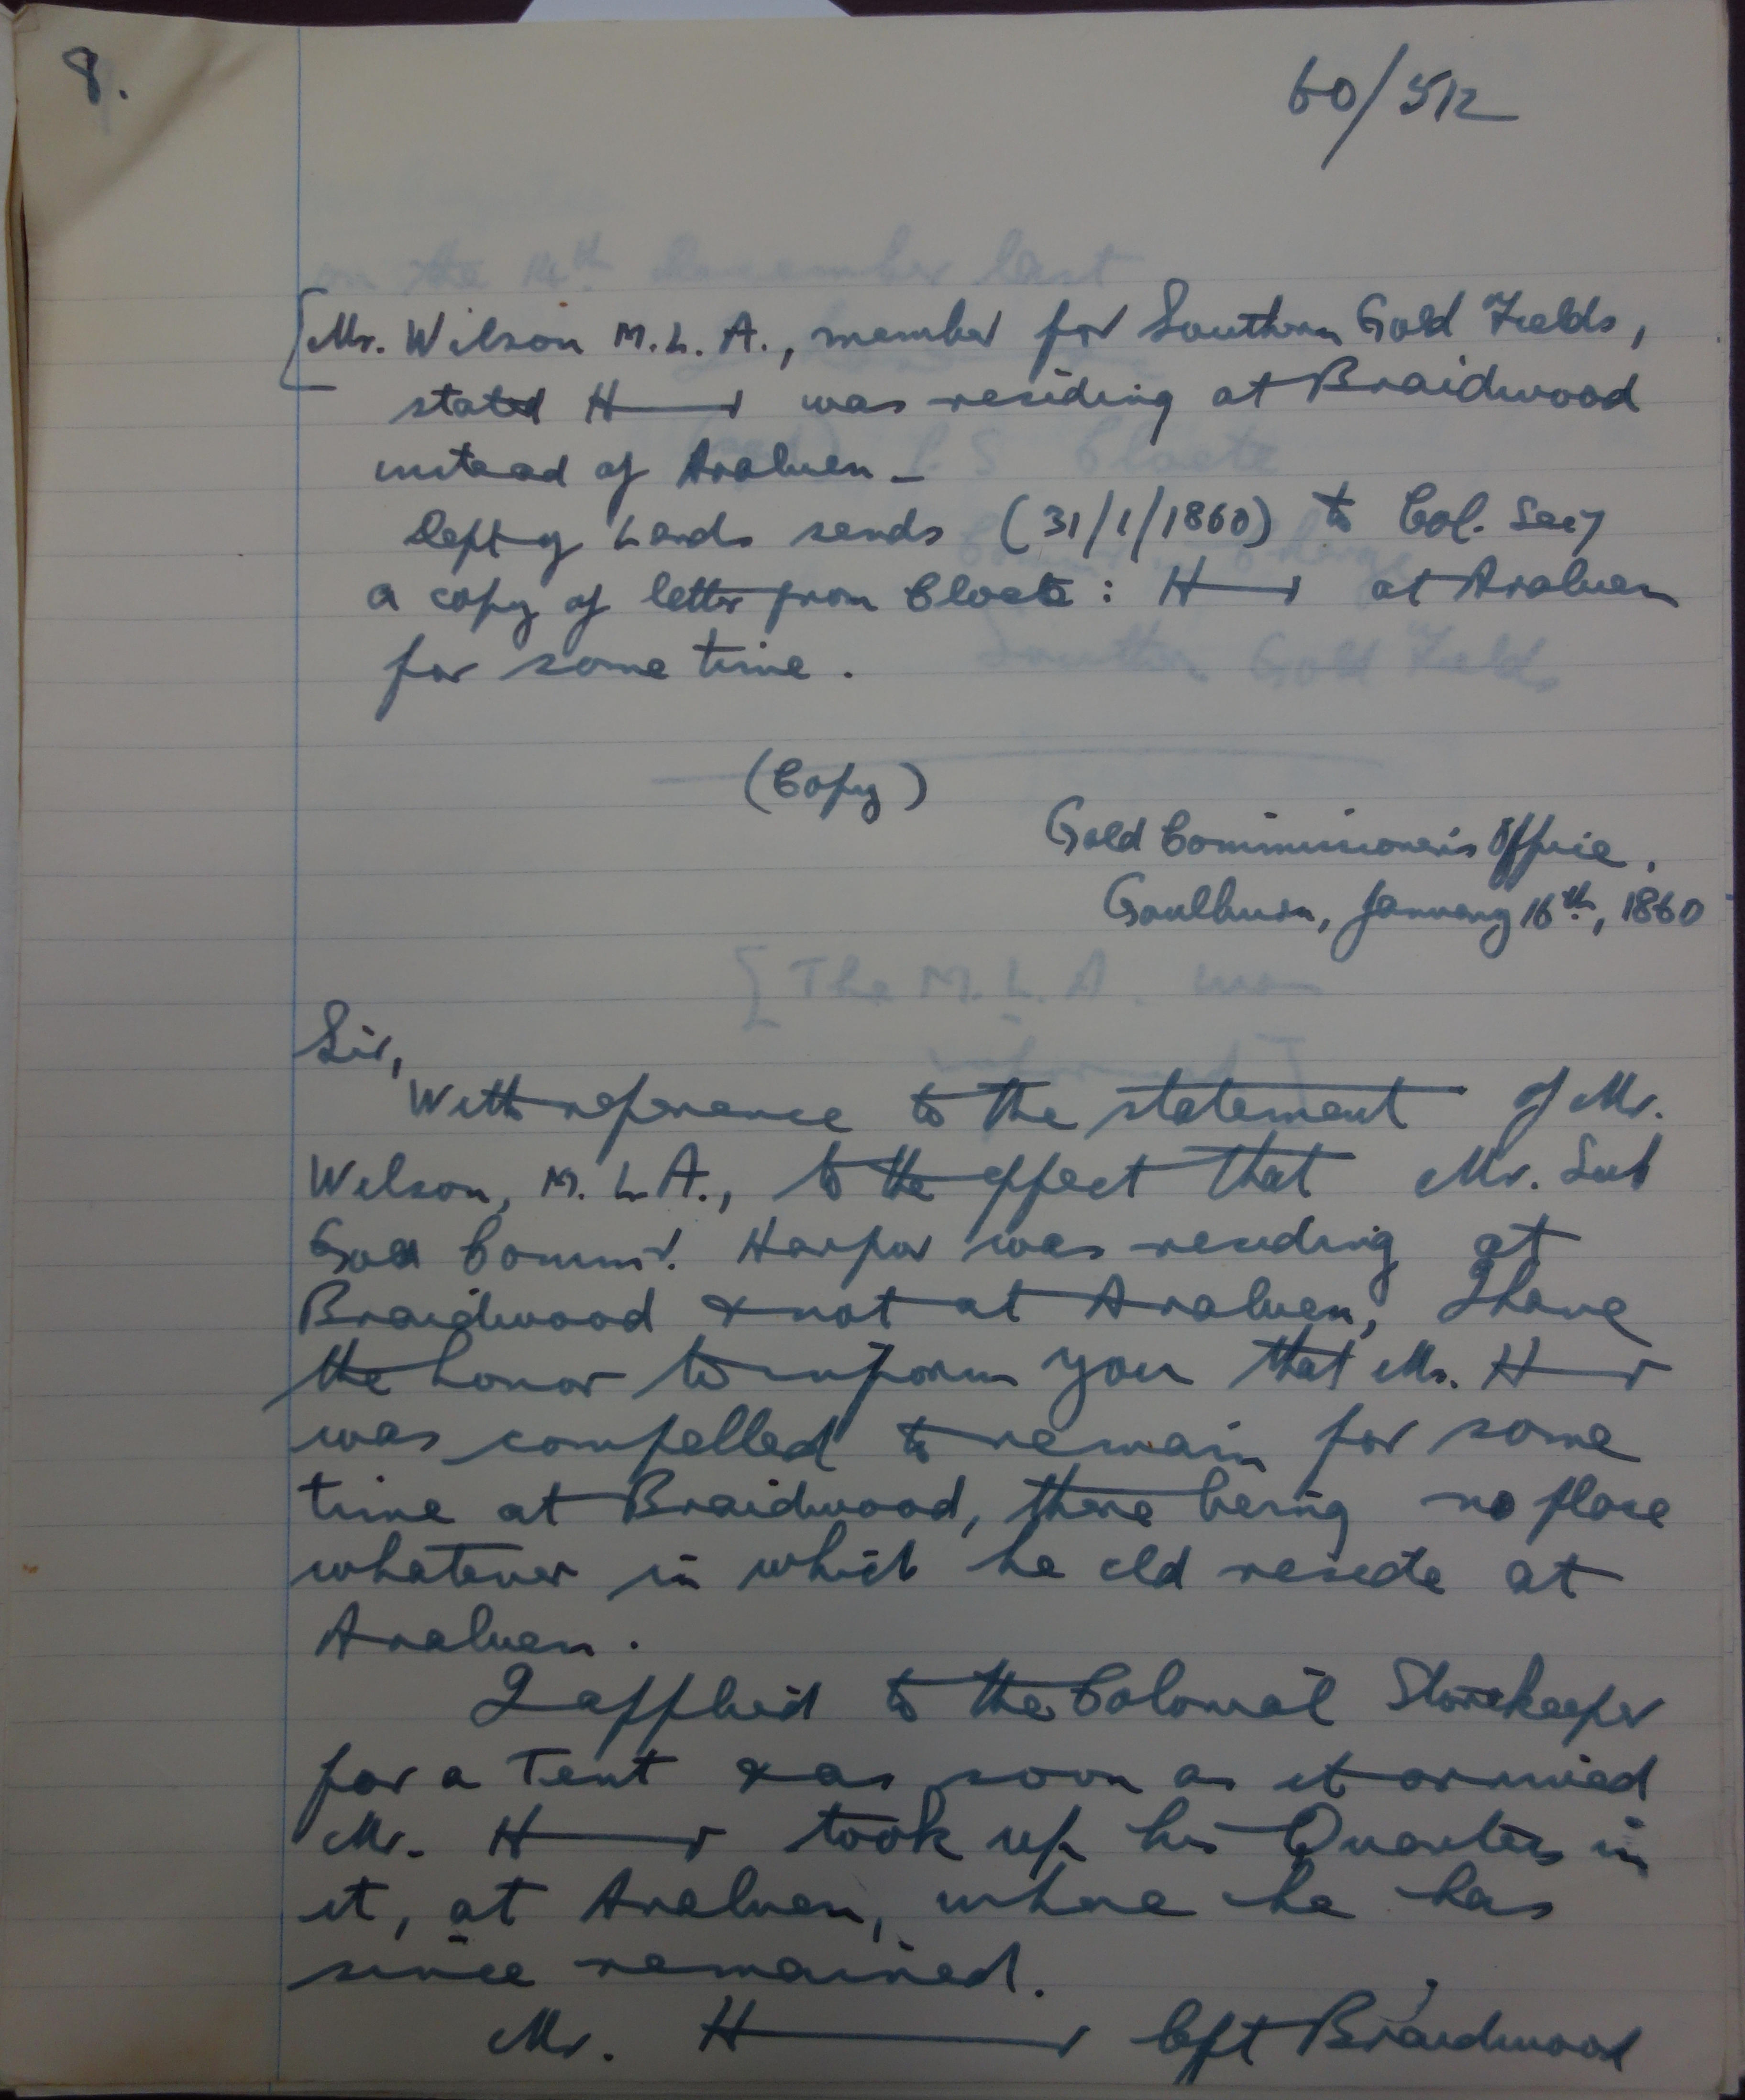 8.
60/512
[Mr. Wilson M.L.A., member for Southern Gold Fields,
stated H——r was residing at Braidwood
instead of Araluen –
Dept of Lands sends (31/1/1860) to Col. Secy
a copy of letter from Cloete: H——r at Araluen
for some time.
(Copy)
Gold Commissioner's Office,
Goulburn, January 16th, 1860
Sir,
With reference to the statement of Mr.
Wilson, M.L.A., to the effect that Mr. Sub
Gold Commr. Harper was residing at
Braidwood & not at Araluen, I have
the honor to inform you that Mr. H——r
was compelled to remain for some
time at Braidwood, there being no place
whatever in which he cld reside at
Araluen.
I applied to the Colonial Storekeeper
for a Tent & as soon as it arrived
Mr. H——r took up his Quarters in
it, at Araluen, where he has
since remained.
Mr. H——r left Braidwood